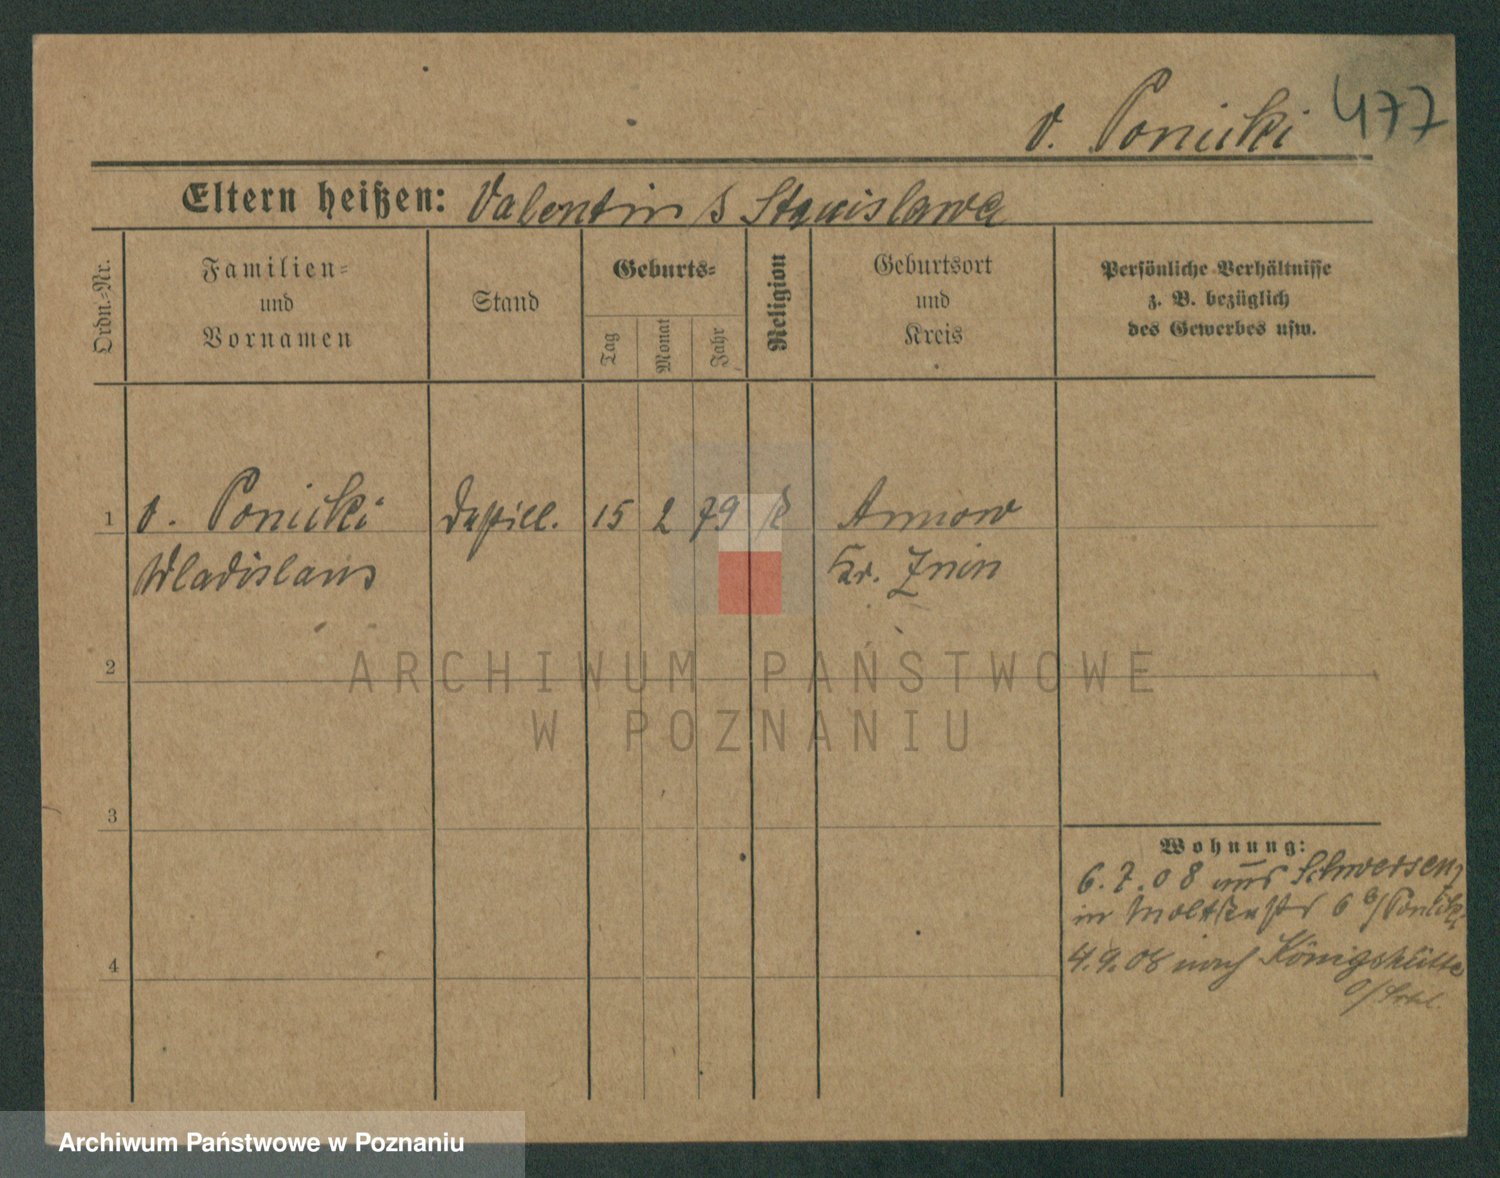 477
v. Ponicki
Eltern heißen: Valentin & Stanislawa
Ordn.-Nr.
Familien-
und
Vornamen
Stand
Geburts-
Tag
Monat
Jahr
Religion
Geburtsort
und
Kreis
Persönliche Verhältnisse
z. B. bezüglich
des Gewerbes usw.
1 v. Ponicki Destill. 15 2 79 k Annow
Wladislaus Kr. Znin
2
3
4
Wohnung:
6.7.08 aus Schwersenz
in Moltkestr 6 b/Ponicki
4.9.08 nach Königshütte
O/Schl.
ARCHIWUM PAŃSTWOWE
W POZNANIU
Archiwum Państwowe w Poznaniu